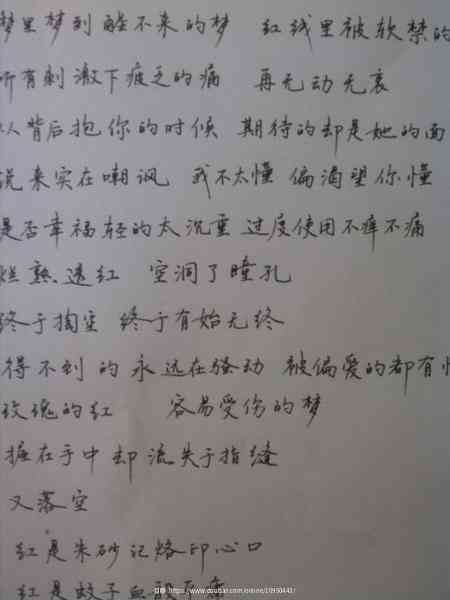 梦里梦到醒不来的梦 红线里被软禁的
所有刺激下疲乏的痛 再无动无衷
从背后抱你的时候 期待的却是她的面
说来实在嘲讽 我不太懂 偏渴望你懂
是否幸福轻的太沉重 过度使用不痒不痛
烂熟透红 空洞了瞳孔
终于掏空 终于有始无终
得不到的永远在骚动 被偏爱的都有
玫瑰的红 容易受伤的梦
握在手中却流失于指缝
又落空
红是朱砂记烙印心口
红是蚊子血般平庸